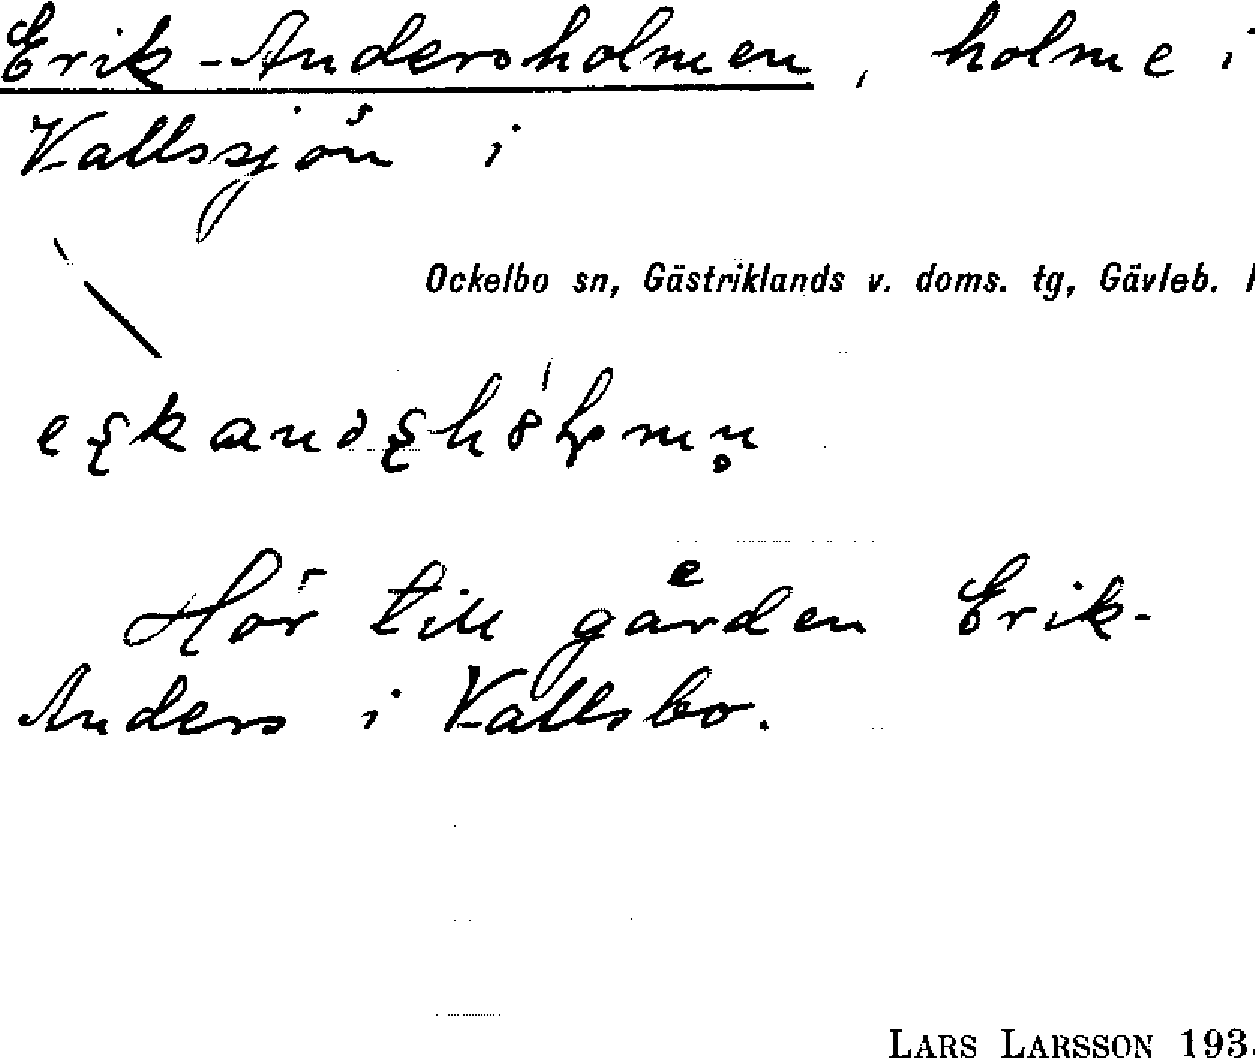 Erik-Andersholmen, holme i
Vallssjön i
Ockelbo sn, Gästriklands v. doms. tg, Gävleb.
Hör till gården Erik-
Anders i Vallsbo.
LARS LARSSON 193